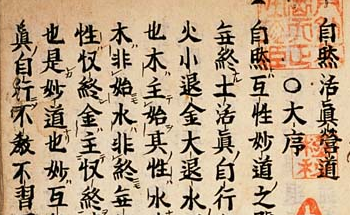 自然活眞營道
〇大序
自然互性妙道之
無終土活眞自行
火小退金大退水
也木主始其性水
木非始水非終無
性収終金主収終
也是妙道也妙互
眞自行不教不習